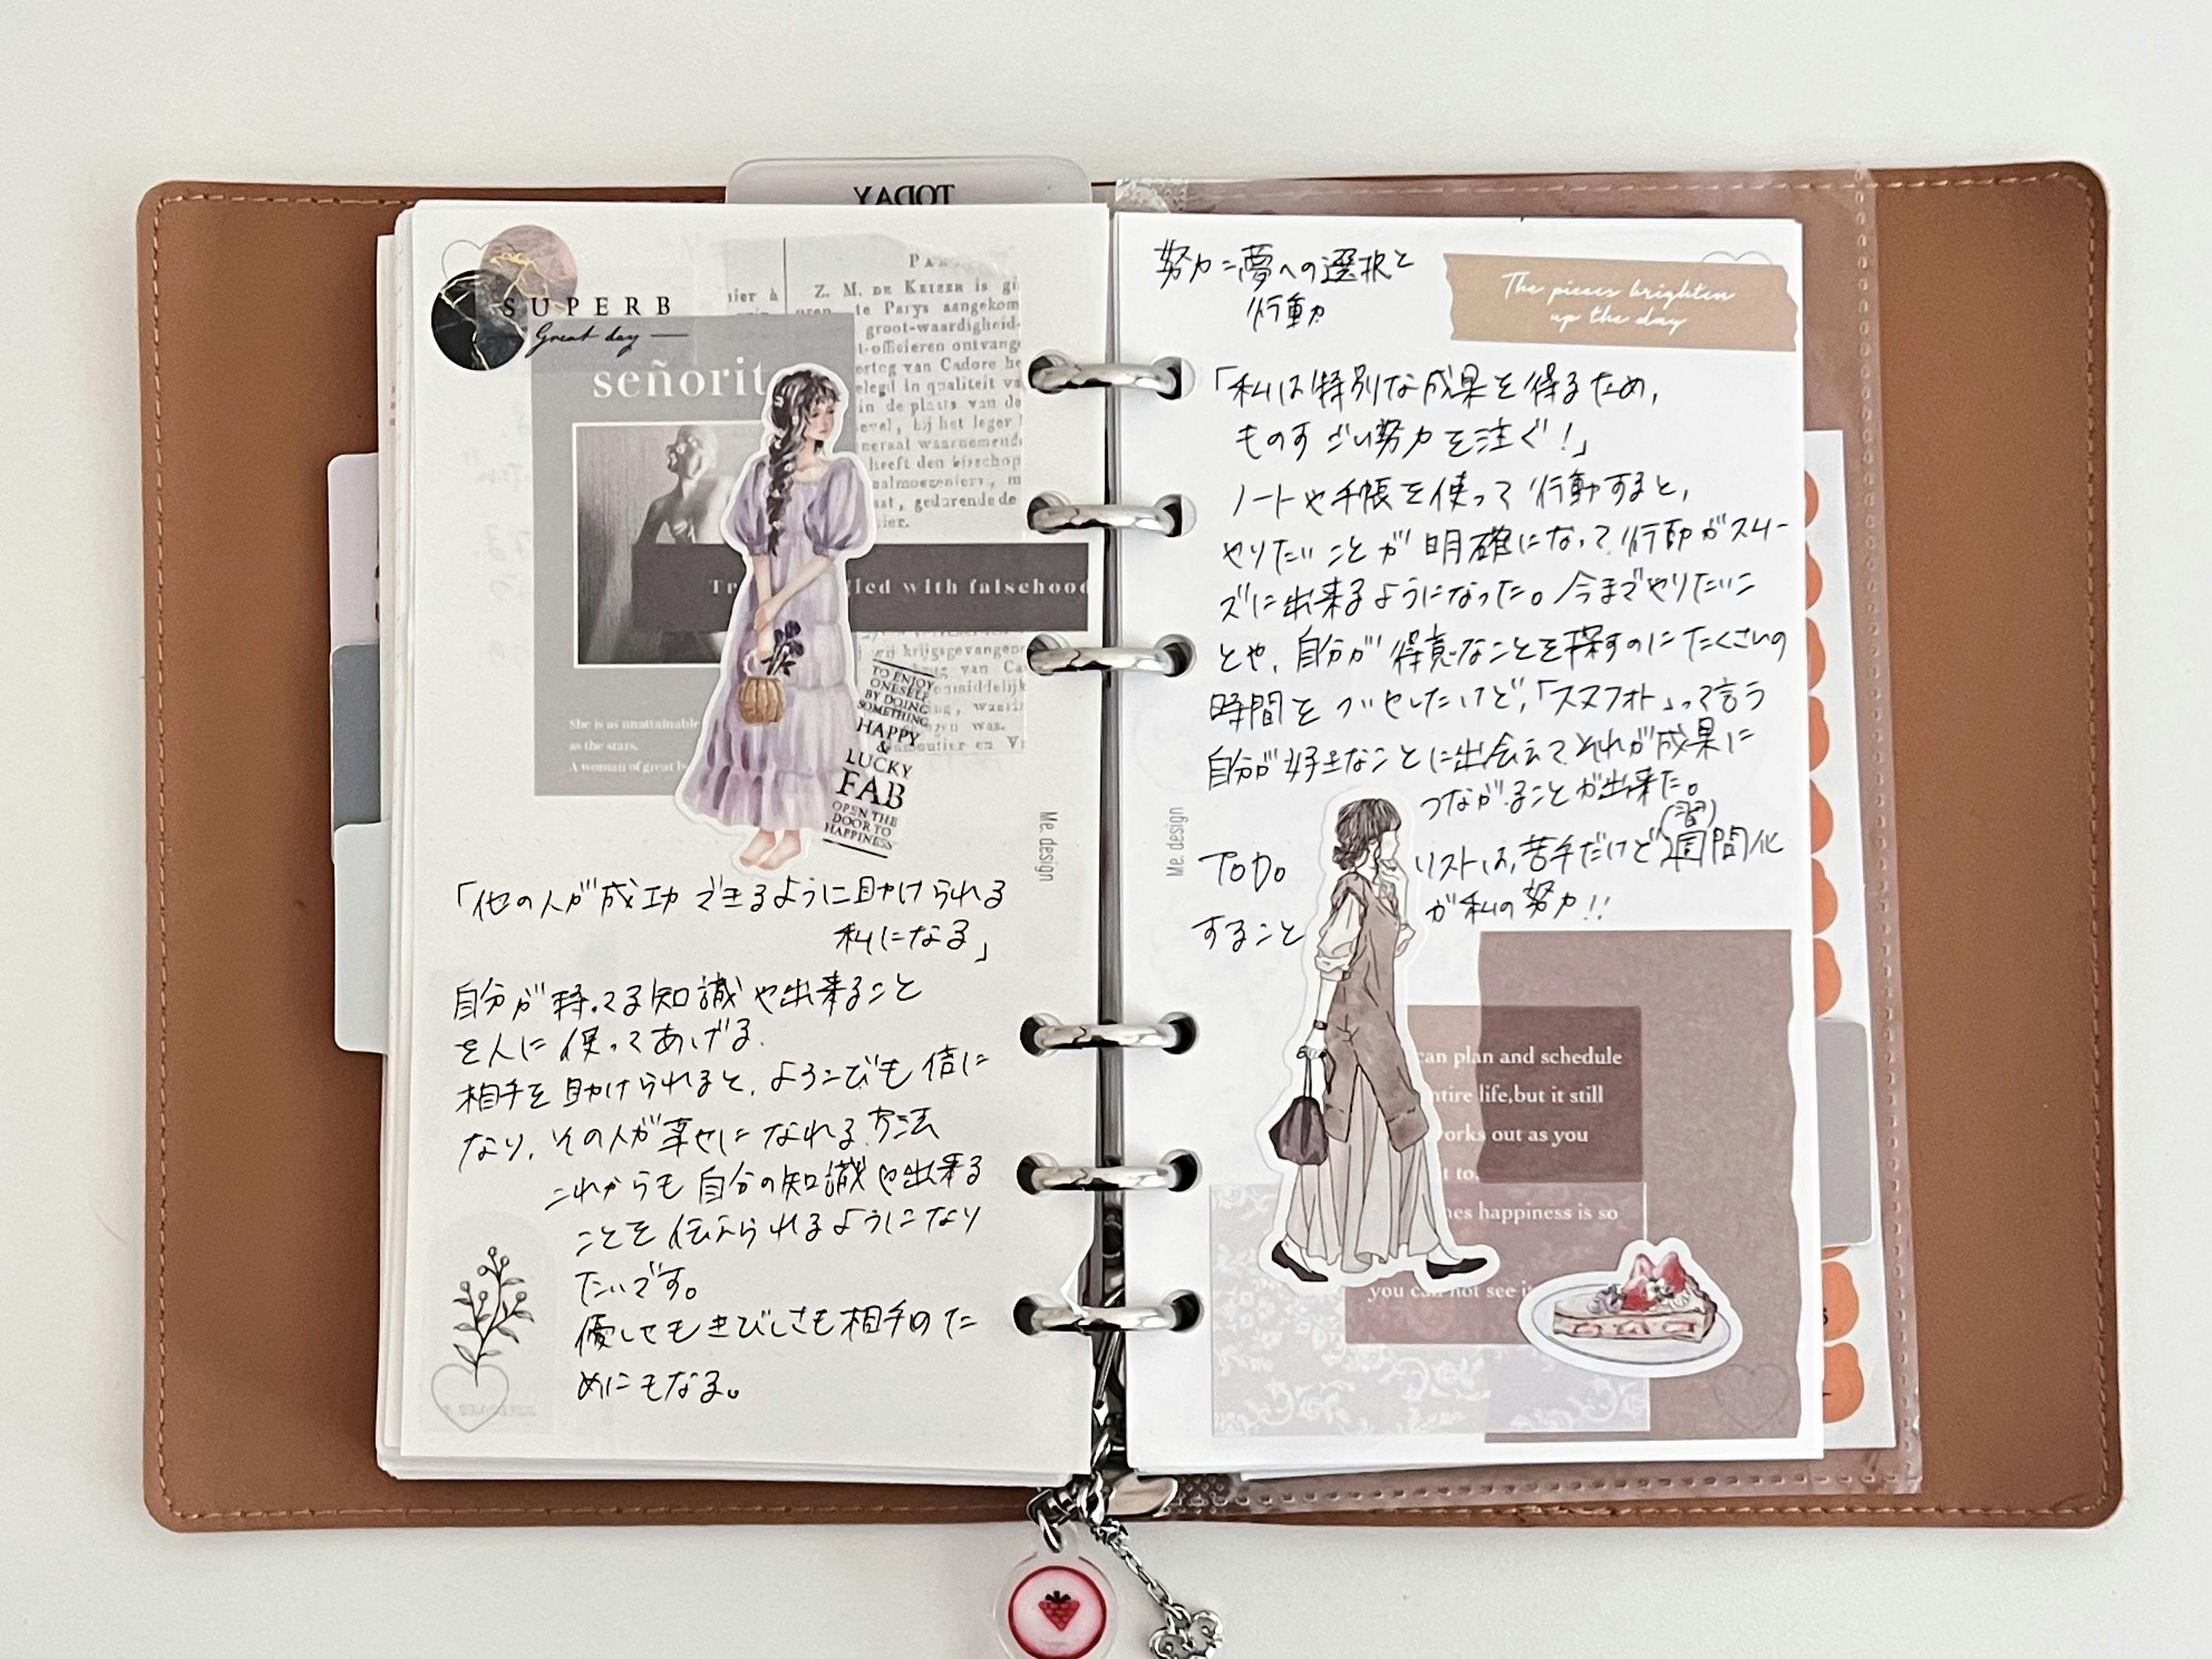 TODAY
SUPERB
Great day
señorit
Z. M. DE KEIZER is gi
te Parys aangekom
groot-waardigheid-
t-officieren ontvang
ertog van Cadore he
elegd in qualiteit va
in de plaats van de
evel, bij het leger
neraal waarnemende
heeft den bisschop
aalmoezeniers, m
ast, gedurende de
ier.
led with falsehood
zij krijgsgevangen
van Ca
She is as unattainable
as the stars.
A woman of great b
TO ENJOY
ONESELF
BY DOING
SOMETHING
HAPPY
&
LUCKY
FAB
OPEN THE
DOOR TO
HAPPINESS
Me. design
「他の人が成功できるように助けられる
私になる」
自分が持ってる知識や出来ること
を人に使ってあげる.
相手を助けられると、よろこびも倍に
なり、その人が幸せになれる方法
これからも自分の知識や出来る
ことを伝えられるようになり
たいです。
優してもきびしさも相手のた
めにもなる。
努力=夢への選択と
行動力
The pieces brighten
up the day
「私は特別な成果を得るため,
ものすごい努力を注ぐ!」
ノートや手帳を使って行動すると,
やりたいことが明確になって、行動がスムー
ズに出来るようになった。今までやりたいこ
とや、自分が得意なことを探すのにたくさんの
時間をついやしたけど,「スマフォト」って言う
自分が好きなことに出会えてそれが成果に
つながることが出来た。
(習)
ToDo リストは,苦手だけど週間化
すること が私の努力!!
Me. design
can plan and schedule
ntire life,but it still
works out as you
t to.
mes happiness is so
you can not see i